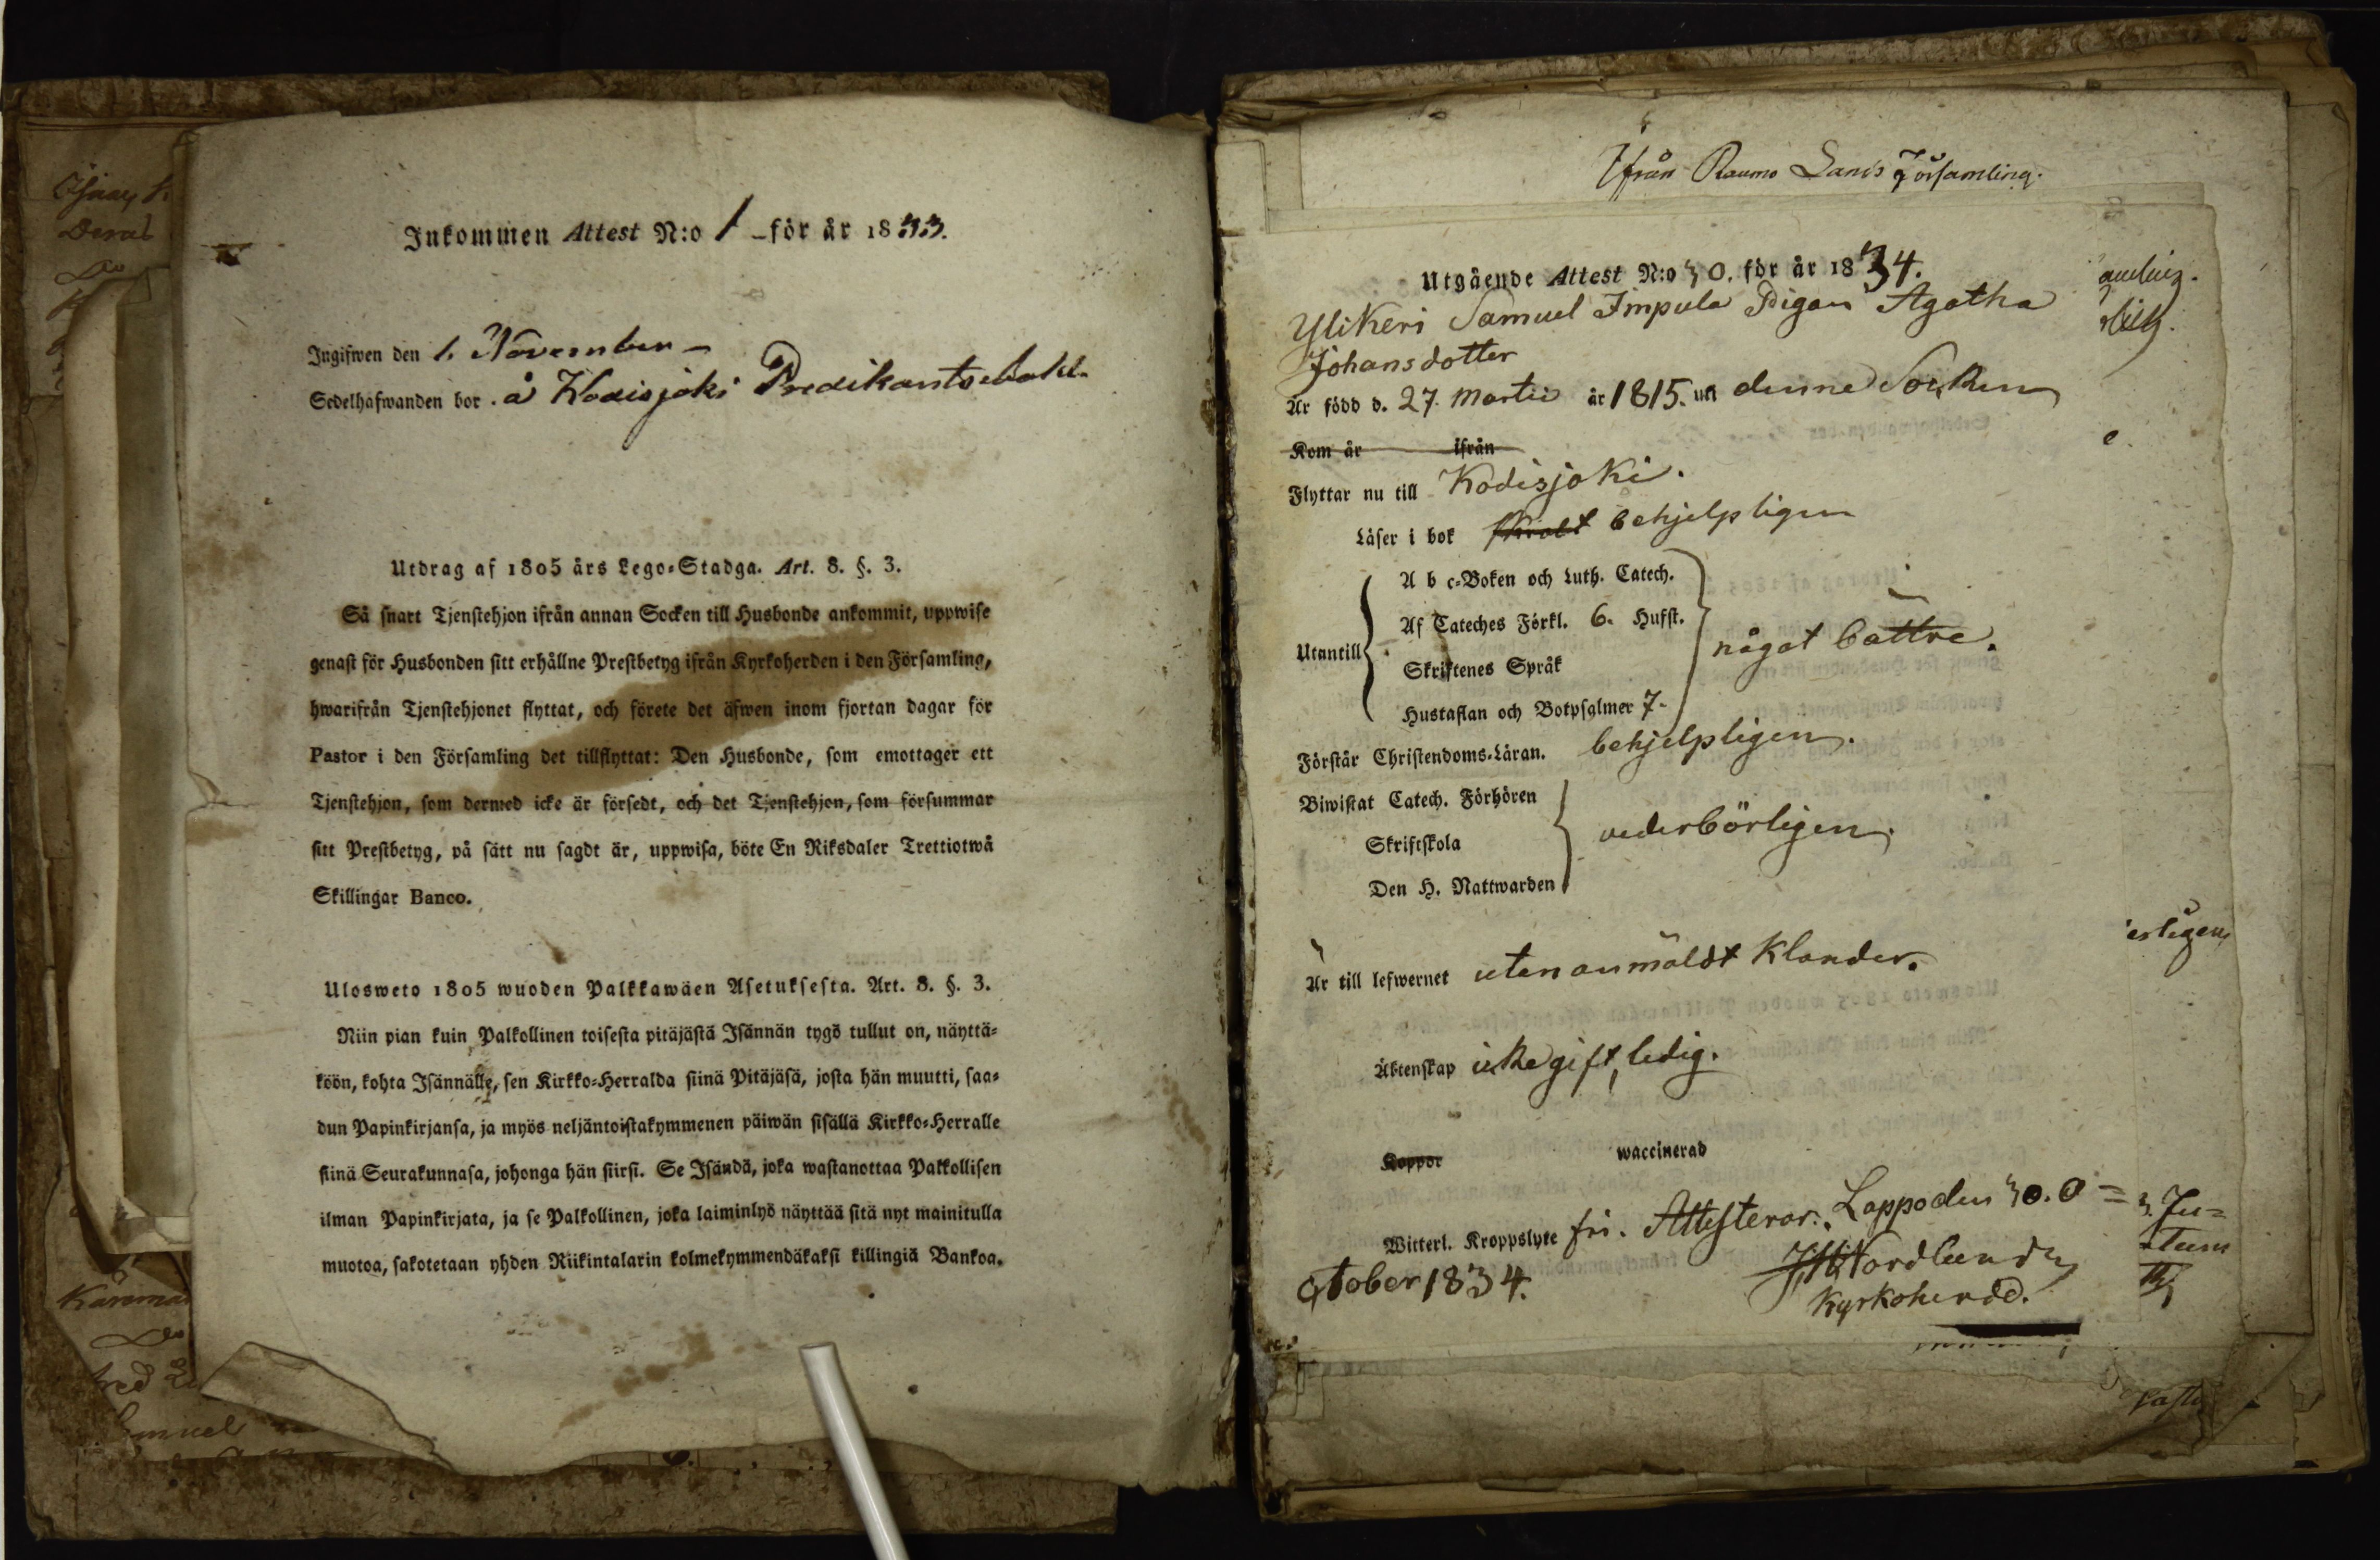 Inkommen Attest N:o 1 – för år 1833.
Ingifwen den 1. November –
Sedelhafwanden bor å Kodisjoki Predikantsebohl.
Utdrag af 1805 års Lego-Stadga. Art. 8. §. 3.
Så snart Tjenstehjon ifrån annan Socken till Husbonde ankommit, uppwise
genast för Husbonden sitt erhållne Prestbetyg ifrån Kyrkoherden i den Församling,
hwarifrån Tjenstehjonet flyttat, och förete det äfwen inom fjortan dagar för
Pastor i den Församling det tillflyttat: Den Husbonde, som emottager ett
Tjenstehjon, som dermed icke är försedt, och det Tjenstehjon, som försummar
sitt Prestbetyg, på sätt nu sagdt är, uppwisa, böte En Riksdaler Trettiotwå
Skillingar Banco.
Ulosweto 1805 wuoden Palkkawäen Asetuksesta. Art. 8. §. 3.
Niin pian kuin Palkollinen toisesta pitäjästä Isännän tygö tullut on, näyttä-
köön, kohta Isännälle, sen Kirkko-Herralda siinä Pitäjäsä, josta hän muutti, saa-
dun Papinkirjansa, ja myös neljäntoistakymmenen päiwän sisällä Kirkko-Herralle
siinä Seurakunnasa, johonga hän siirsi. Se Isändä, joka wastanottaa Palkollisen
ilman Papinkirjata, ja se Palkollinen, joka laiminlyö näyttää sitä nyt mainitulla
muotoa, sakotetaan yhden Riikintalarin kolmekymmendäkaksi killingiä Bankoa.
Ifrån Raumo Lands Församling.
Utgående Attest N:o 30. för år 1834.
Ylikeri Samuel Impula Pigan Agatha
Johansdotter
Är född d. 27. Martii år 1815. uti denne Socken
Kom år ifrån
Flyttar nu till Kodisjoki.
Läser i bok behjelpligen
A b c-Boken och Luth. Catech.
Af Cateches Förkl. 6. Husst.
Utantill något bättre.
Skriftenes Språk
Hustaflan och Botpsalmer 7.
Förstår Christendoms-Läran. behjelpligen.
Biwistat Catech. Förhören
Skriftskola vederbörligen.
Den H. Nattwarden
Är till lefwernet utan anmäldt Klander.
Äktenskap icke gift, ledig.
Koppor waccinerad
Witterl. Kroppslyte fri. Attesterar. Lappo den 30. O=
ctober 1834. Nordlund
Kyrkoherde.